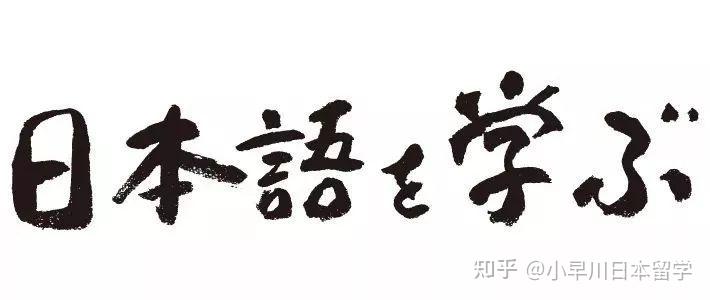 日本語を学ぶ
知乎 @小早川日本留学